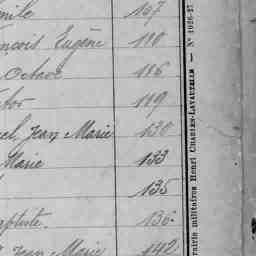 mile 107
ncois Eugène 110
Octave 116
tor 119
el Jean Marie 130
Marie 133
135
aptiste. 136
Jean Marie 142
rairie militaires Henri CHARLES-LAVAUZELLE — N° 1026-27